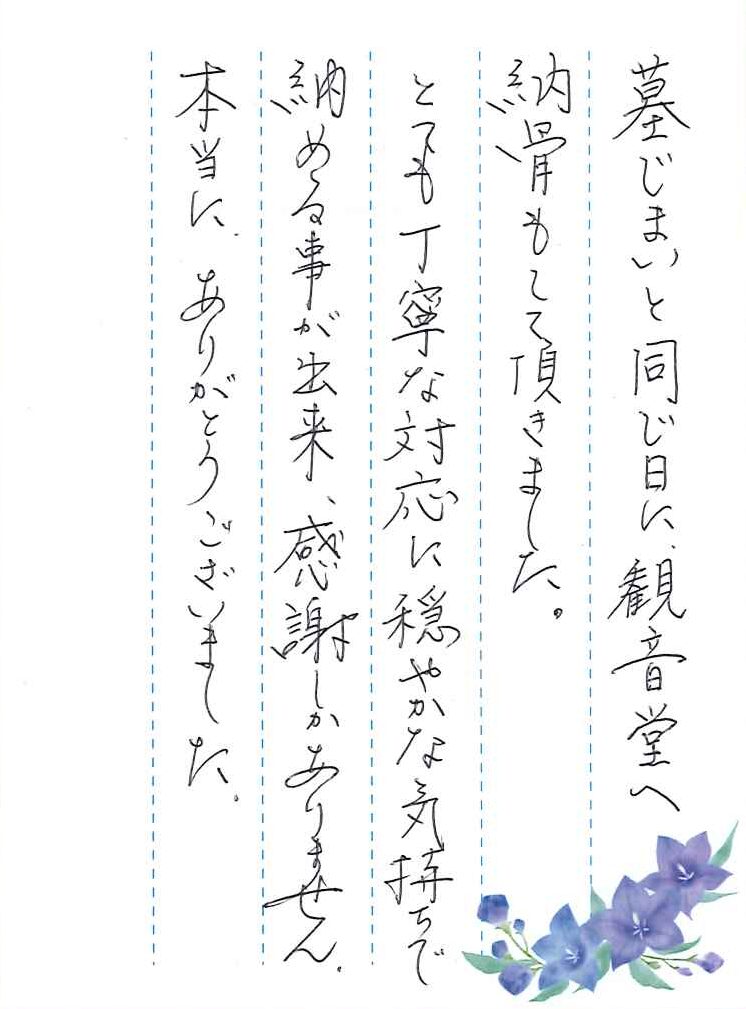 墓じまいと同じ日に、観音堂へ
納骨もして頂きました。
とても丁寧な対応に穏やかな気持ちで
納める事が出来、感謝しかありません。
本当に、ありがとうございました。